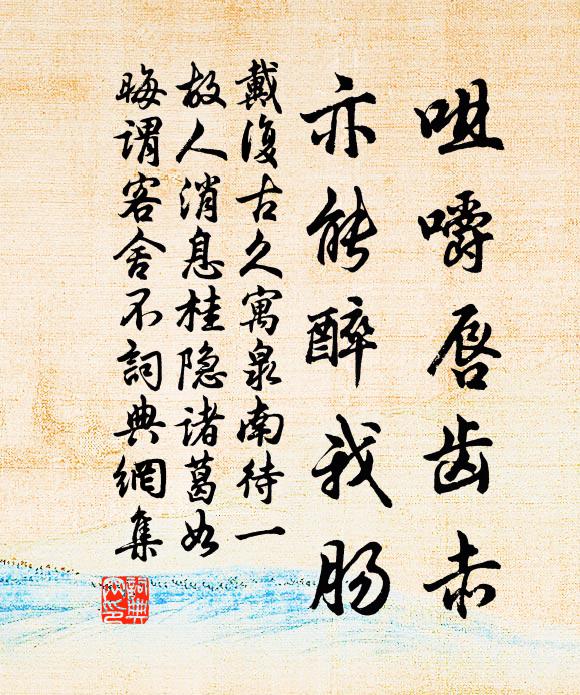 咀嚼唇齿赤
亦能醉我肠
戴復古久寓泉南待一
故人消息桂隐諸葛如
晦谓客舍不詞典網集